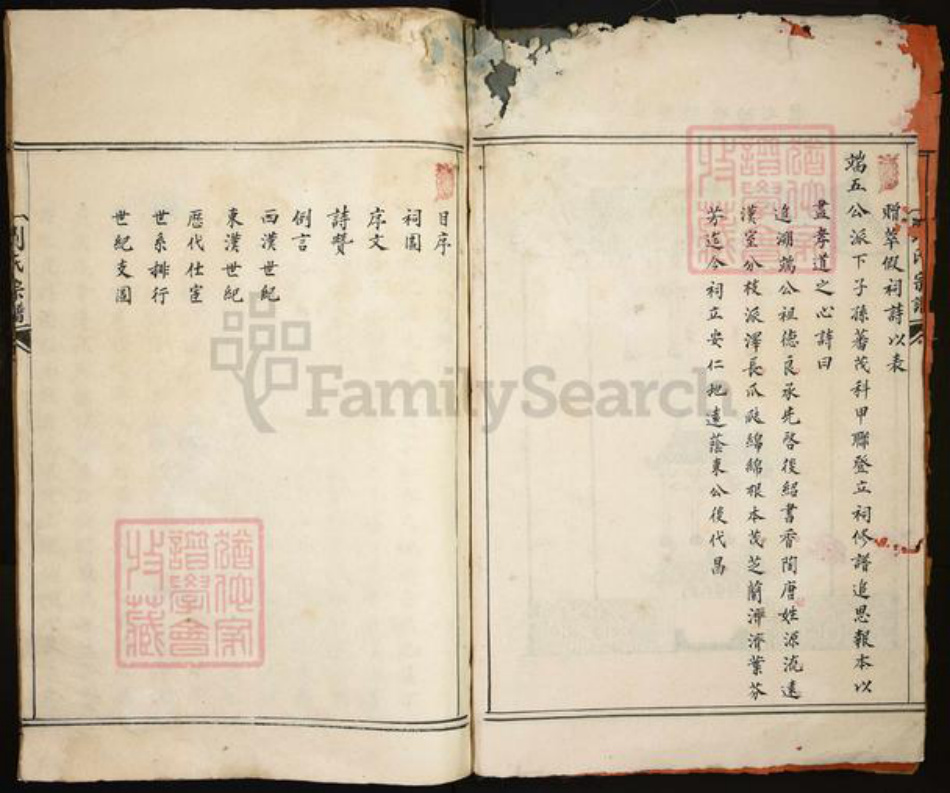 贈萃假祠詩以表
端五公派下子孫蕃茂科甲聯登立祠修譜追思報本以
盡孝道之心詩曰
追溯端公祖德良承先啓後紹書香陶唐姓源流遠
漢室分枝派澤長瓜瓞綿綿根本茂芝蘭濟濟葉芬
芳迄今祠立安仁地遠蔭東公後代昌
目序
祠圖
序文
詩贊
例言
西漢世紀
東漢世紀
歷代仕宦
世系排行
世紀支圖
劉氏宗譜
猶他家
譜學會
收藏
FamilySearch